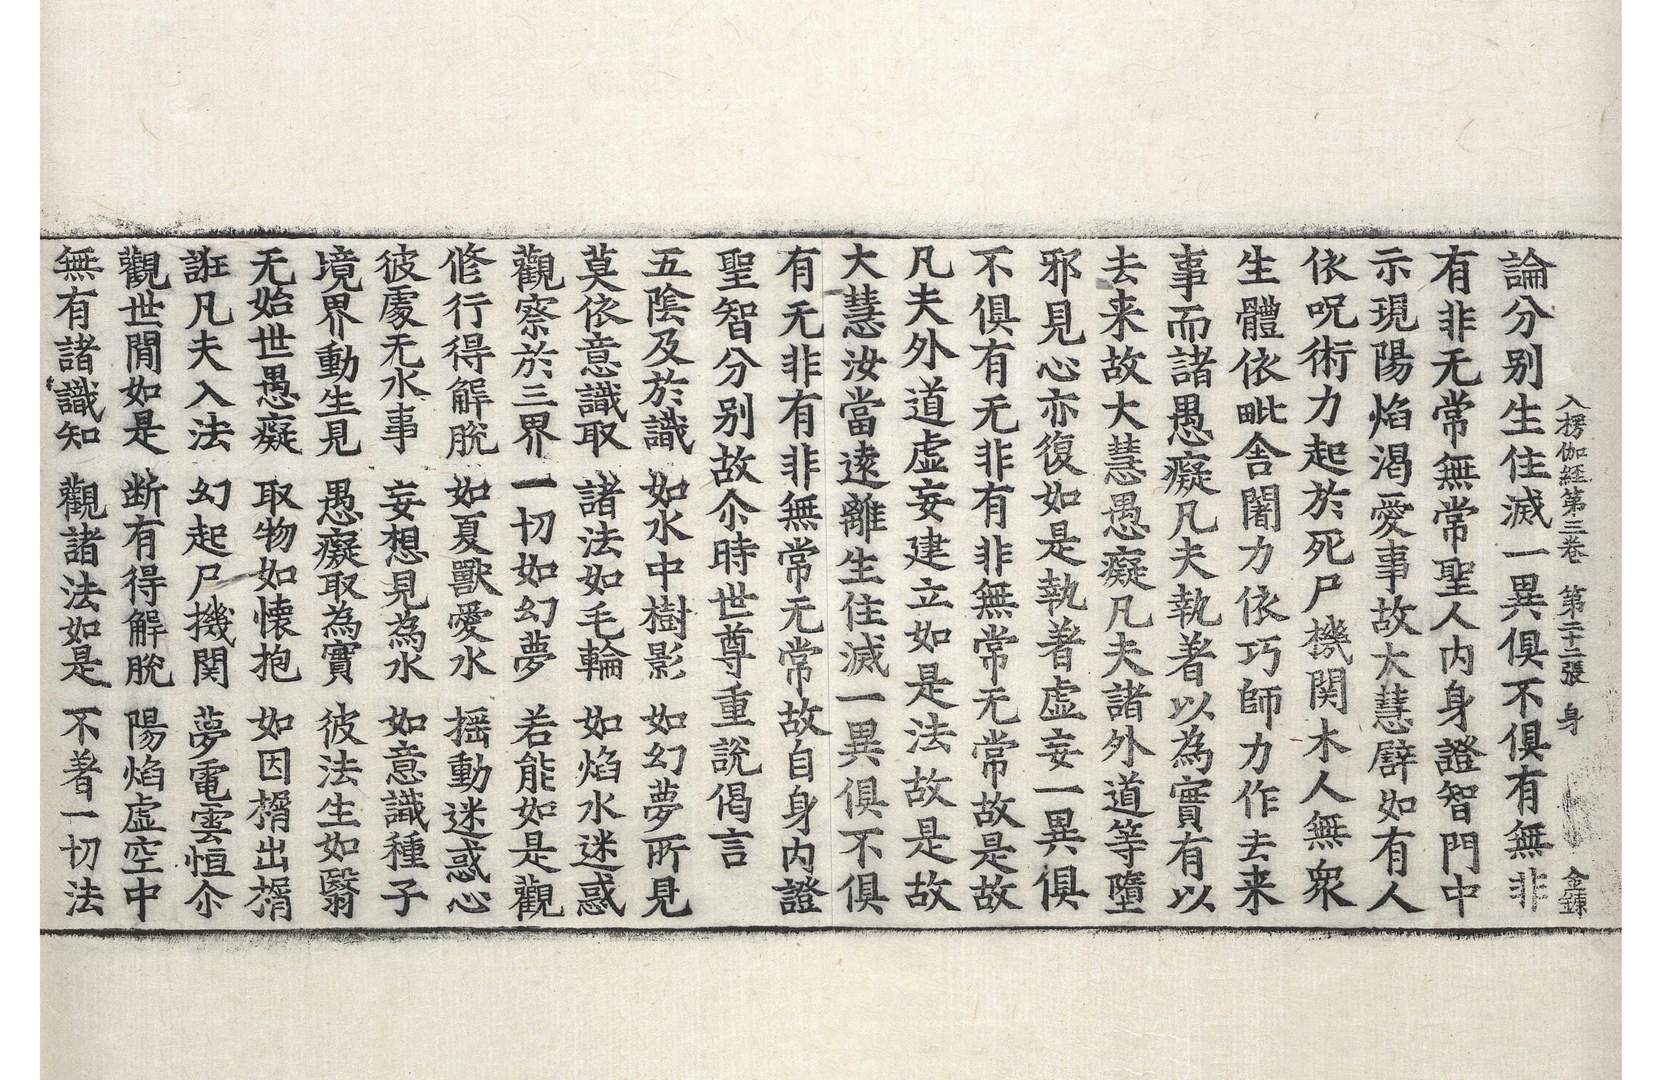 入楞伽經第三卷 第二十二張 身 金鍊
論分別生住滅一異俱不俱有無非
有非无常無常聖人內身證智門中
示現陽焰渴愛事故大慧譬如有人
依呪術力起於死尸機関木人無衆
生體依毗舍闍力依巧師力作去来
事而諸愚癡凡夫執著以為實有以
去来故大慧愚癡凡夫諸外道等墮
邪見心亦復如是執著虛妄一異俱
不俱有无非有非無常无常故是故
凡夫外道虛妄建立如是法故是故
大慧汝當遠離生住滅一異俱不俱
有无非有非無常无常故自身內證
聖智分別故尒時世尊重說偈言
五陰及於識 如水中樹影 如幻夢所見
莫依意識取 諸法如毛輪 如焰水迷惑
觀察於三界 一切如幻夢 若能如是觀
修行得解脫 如夏獸愛水 搖動迷惑心
彼處无水事 妄想見為水 如意識種子
境界動生見 愚癡取為實 彼法生如翳
无始世愚癡 取物如懷抱 如因榍出榍
誑凡夫入法 幻起尸機関 夢電雲恒尒
觀世間如是 断有得解脫 陽焰虛空中
無有諸識知 觀諸法如是 不著一切法